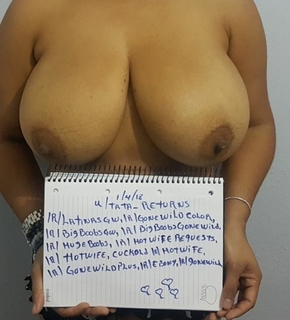 1/4/18
u/TATA_RETURNS
|R/LATINASGW, |R/GONEWILD COLOR,
|R/BIGBOOBSGW, |R/BIGBOOBSGONEWILD,
|R/HUGEBOOBS, |R/HOTWIFE REQUESTS,
|R/HOTWIFE, CUCKOLD |R/HOTWIFE,
|R/GONEWILDPLUS, |R/EBONY, |R/gonewild